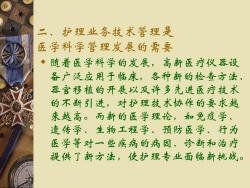 二、护理业务技术管理是
医学科学管理发展的需要
随着医学科学的发展，高新医疗仪器设
备广泛应用于临床，各种新的检查方法、
器官移植的开展以及许多先进医疗技术
的不断引进，对护理技术协作的要求越
来越高。而新的医学理论，如免疫学、
遗传学、生物工程学、预防医学、行为
医学等对一些疾病的病因、诊断和治疗
提供了新方法，使护理专业面临新挑战。